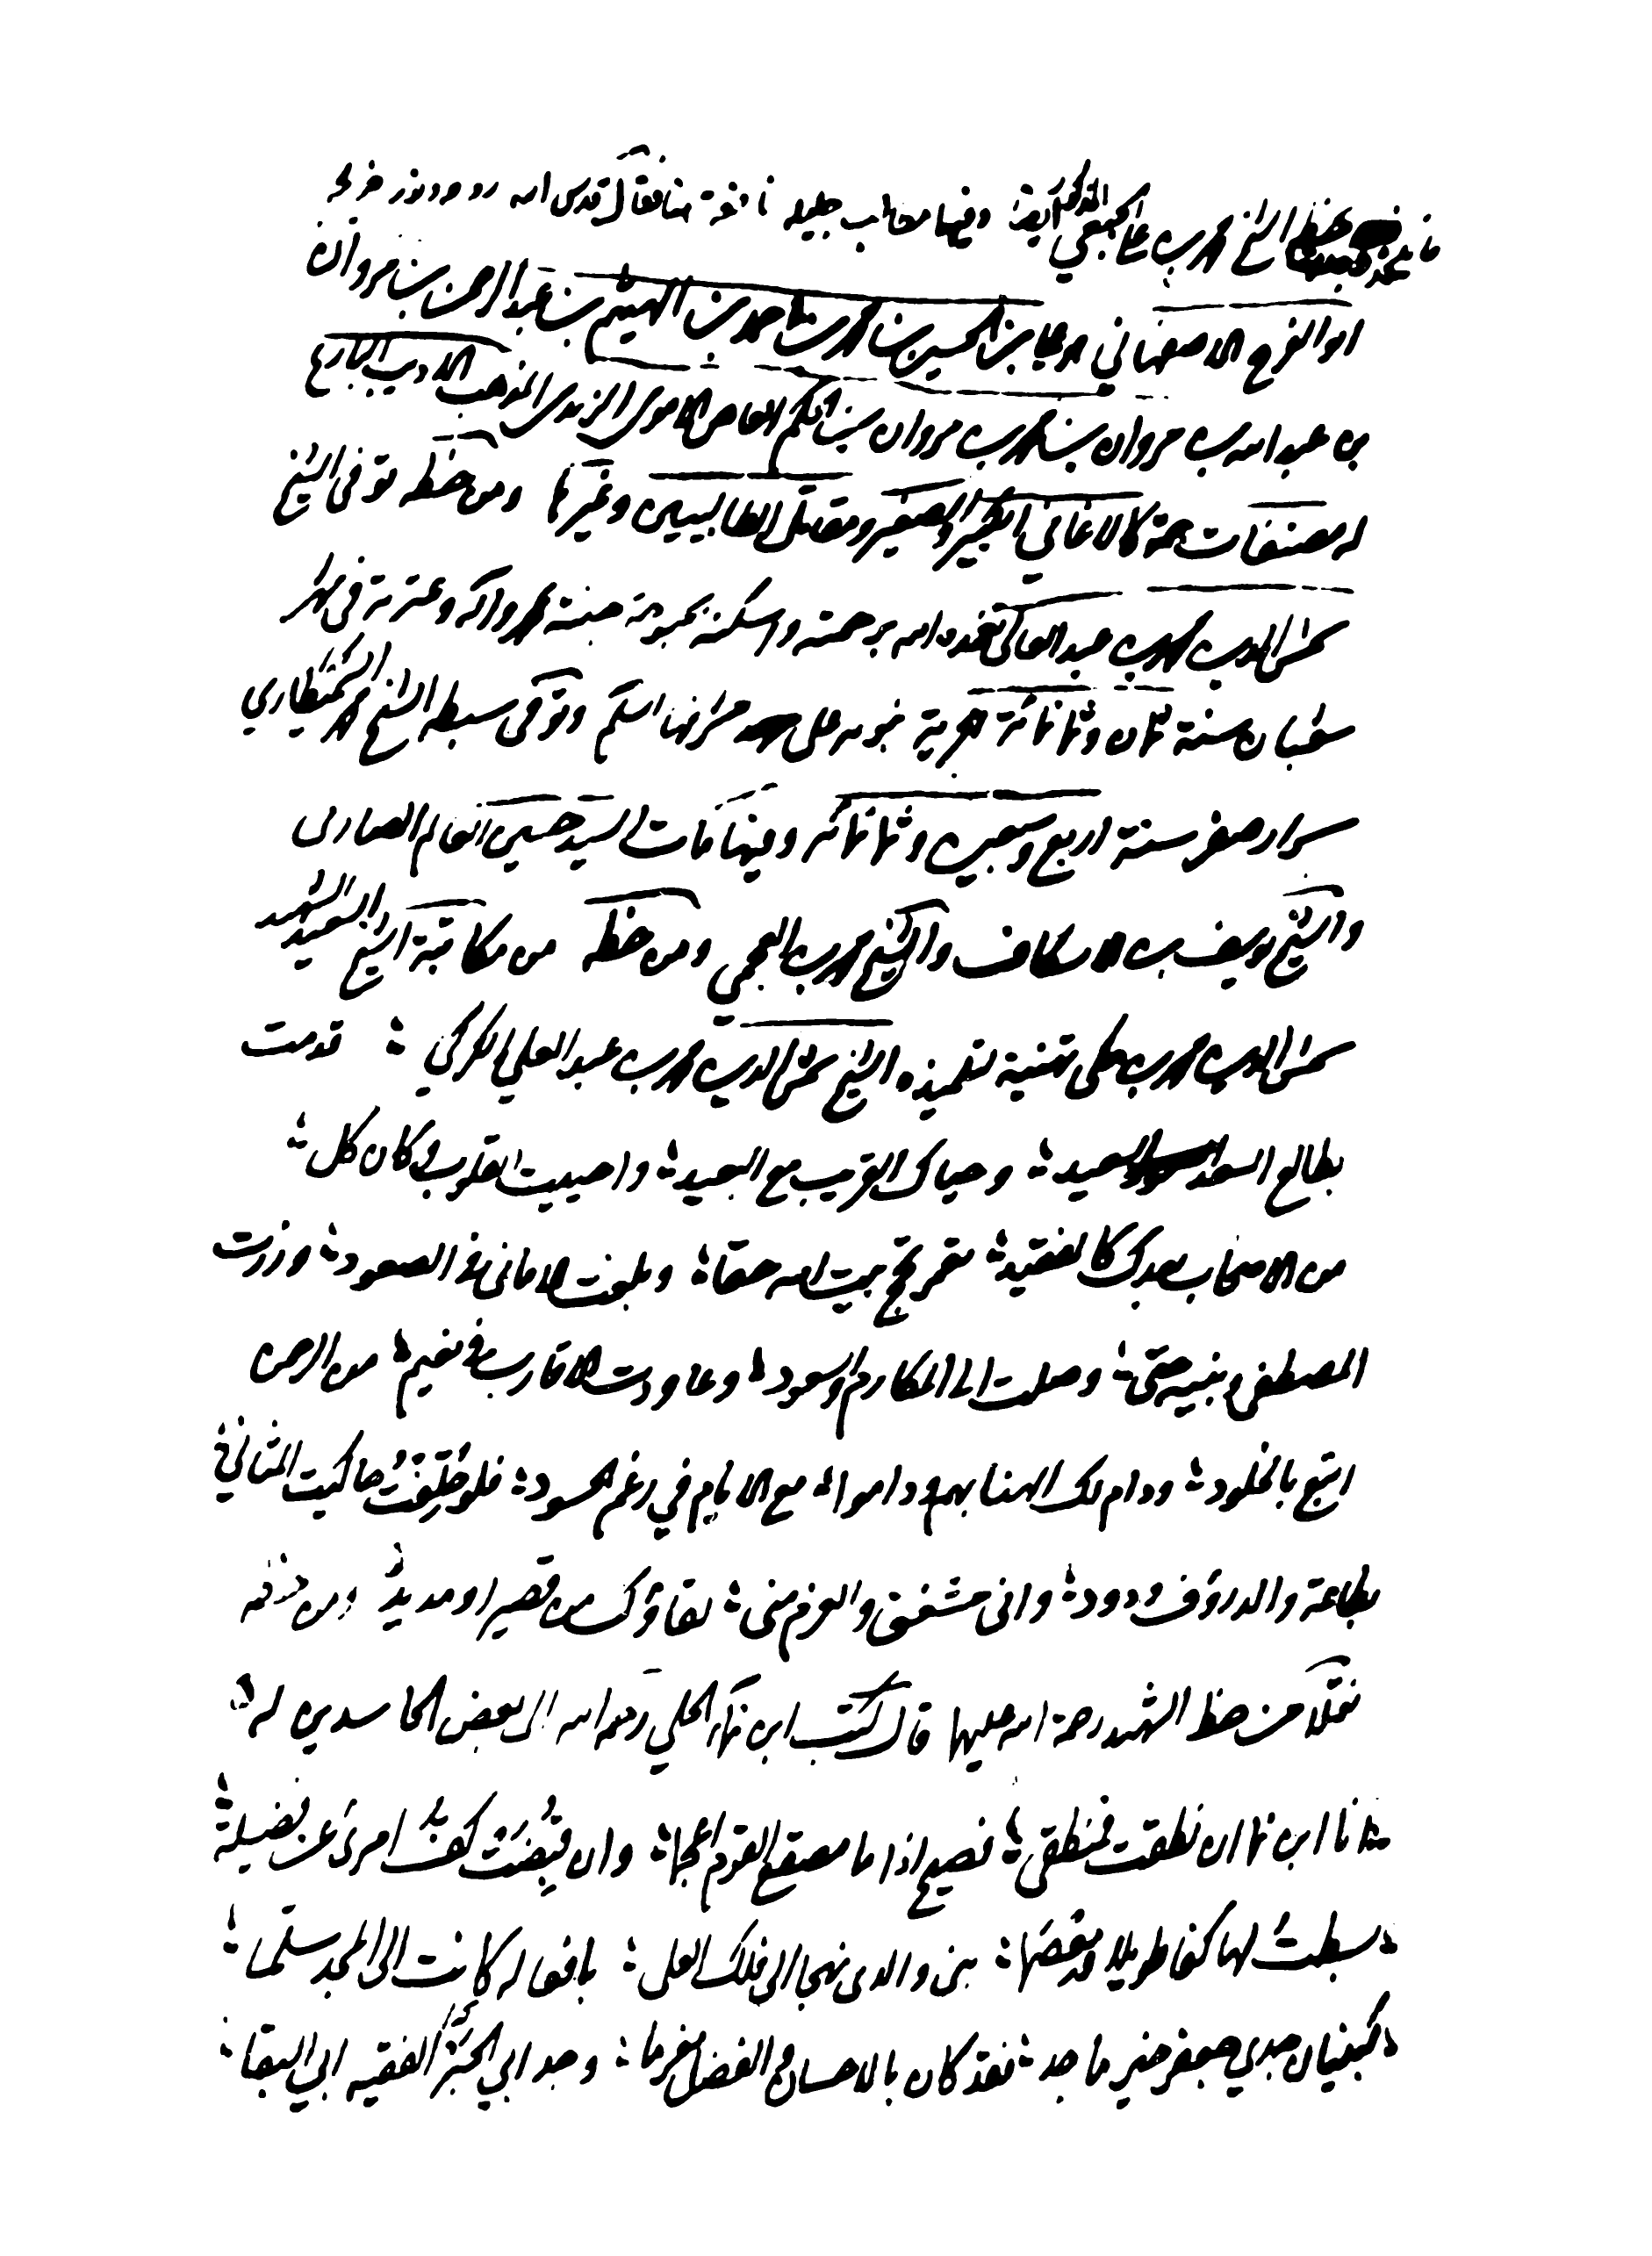 فائدة بخط الشيخ محمد بن علي الجبعي المذكور أيضا وفيها مطالب جليلة نافعة منافعا قال قدس الله روحه ونور ضريحه
ابو الفرج الاصفهاني هو علي بن الحسين بن محمد بن احمد بن الهيثم بن عبد الرحمن بن مروان
بن عبد الله بن مروان بن محمد بن مروان بن الحكم العاص الاموي الزيدي المذهب الاديب البارع
له مصنفات جمة كالاغاني الكبير والصغير ومقاتل الطالبيين وغيرها ومن خطه توفى الشيخ
شمس الدين محمد بن عبد العالي تغمده الله برحمته واسكنه بحبوحة جنته بمحمد واله وعترته في شهر
شعبان سنة ثمان وثمانمائة هجرية نبويه على مشرفها السلم وتوفى سبطه الشيخ محمد السميطاري
سرار صفر سنة اربع وسبعين وثمانمائه وفيها مات السيد حسين العالم الصارلى
والشيخ يوسف بن الاسكاف والشيخ محمد بن العجمي ومن خطه من مكاتبة الشيخ السعيد الشهيد
شمس الدين محمد بن مكى تهنية لتلميذه الشيخ شمس الدين محمد بن عبد العلي الكركي قدمت
بطالع السعد السعيد وحياك القريب مع البعيد واحييت القلوب وكان كل
من الاصحاب بعدك كالفقيد تقر بحج بيت الله حقا وبلغت الامانى فى الصعود وزرت
المصطفى وبنيه حتى وصلت الى المكارم والسعود وعاودت الاقارب فى نعيم من الرحمن
اتبع بالخلود ودام لك الهنا بهم وداموا مع الايام في رغم الحسود فلو خلقت ما كيت المثاني
بطاعة والد رؤف ودود وانى مشفق والعزم منى لقاؤك من قصير او مديد ومن خطه
نقلا من خط الشهيد رحمة الله عليهما قال كتب ابن نما الحلي رحمه الله الى بعض الحاسدين له
انا ابن نما ان نطقت فمنطقى فصيح اذا ما مصقع القوم اعجما وان قبضت كف امرئ عن فضيلة
بسطت لها كفا طويلا ومعصما بنى والدى نهجا الى فلك العلى بافعاله كانت الى المجد سلما
كبنيان جدي جعفر خير ماجد فقد كان بالاحسان والفضل مغرما وجد ابي الحبر الفقيه ابي البقا